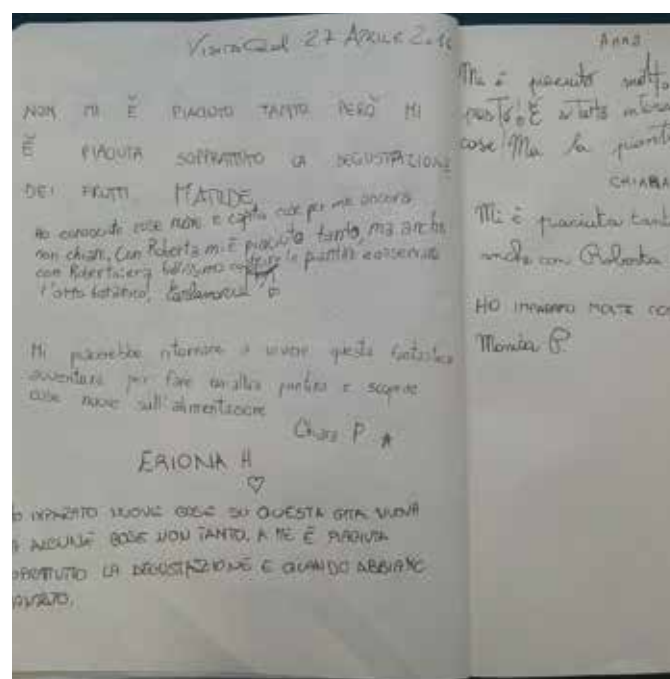 27 APRILE
NON MI È PIACIUTO TANTO PERÒ MI
È PIACIUTA SOPPRATTUTTO LA DEGUSTAZIONE
DEI FRUTTI MATILDE
Ho conosciuto cose nuove e capito cose per me ancora
non chiare. Con Roberta mi è piaciuto tanto, ma anche
con Roberta era bellissimo le piantine e osservare
l'orto botanico!
Mi piacerebbe ritornare a vivere questa fantastica
avventura per fare un'altra piantina e scoprire
cose nuove sull'alimentazione
Chiara P
ERIONA H
O IMPARATO NUOVE COSE SU QUESTA GITA NUOVA
ALCUNE COSE NON TANTO. A ME È PIACIUTA
OPRATTUTTO LA DEGUSTAZIONE E QUANDO ABBIAMO
Anna
Mi è piaciuto molto
posto! È stato
cose! Ma la
CHIARA
Mi è piaciuta
anche con Roberta
HO IMPARATO MOLTE
Monica P.